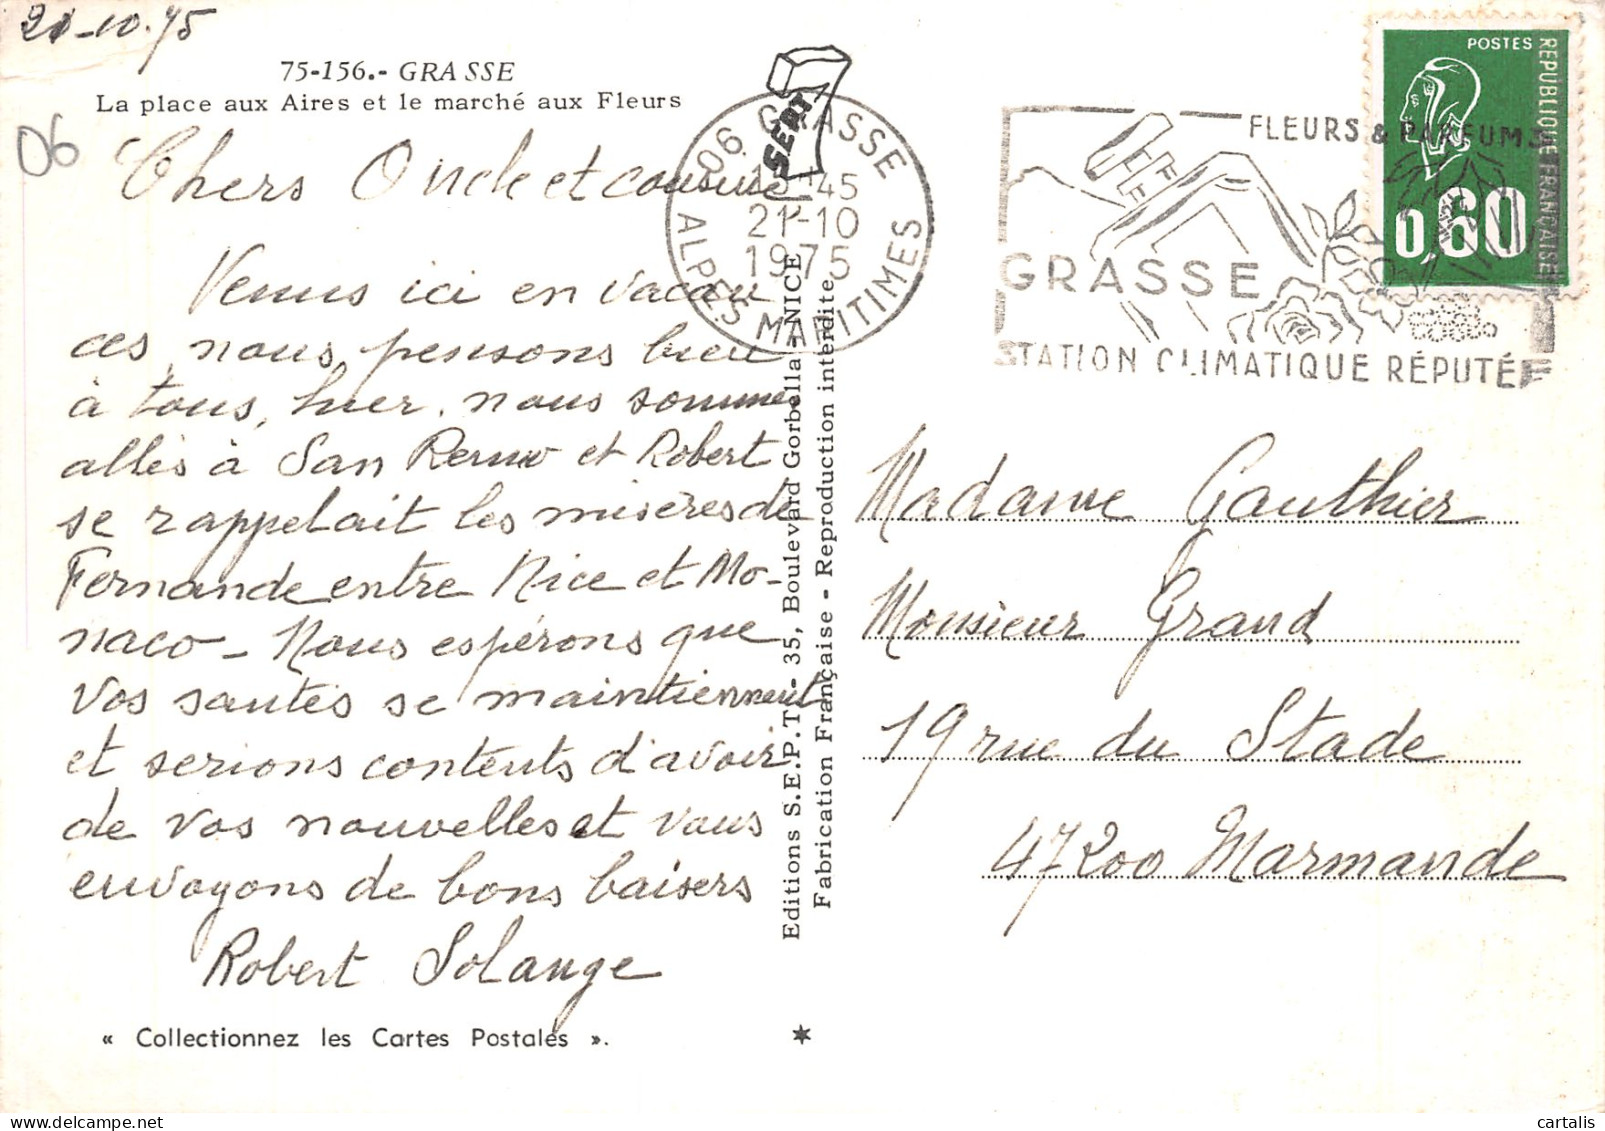 21-10-75
75-156.- GRASSE
La place aux Aires et le marché aux Fleurs
06
Chers Oncle et cousine
Venus ici en vacan
ces, nous pensons bien
à tous, hier, nous sommes
allés à San Remo et Robert
se rappelait les misères de
Fernande entre Nice et Mo-
naco - Nous espérons que
vos santés se maintiennent
et serions contents d'avoir
de vos nouvelles et vous
envoyons de bons baisers
Robert Solange
« Collectionnez les Cartes Postales ».
SEPT
Editions S.E.P.T. - 35, Boulevard Gorbella - NICE
Fabrication Française - Reproduction interdite
06 GRASSE
45
21-10
1975
ALPES MARITIMES
FLEURS & PARFUMS
GRASSE
STATION CLIMATIQUE RÉPUTÉE
POSTES
REPUBLIQUE FRANÇAISE
0,60
Madame Gauthier
Monsieur Grand
19 rue du Stade
47200 Marmande
cartalis